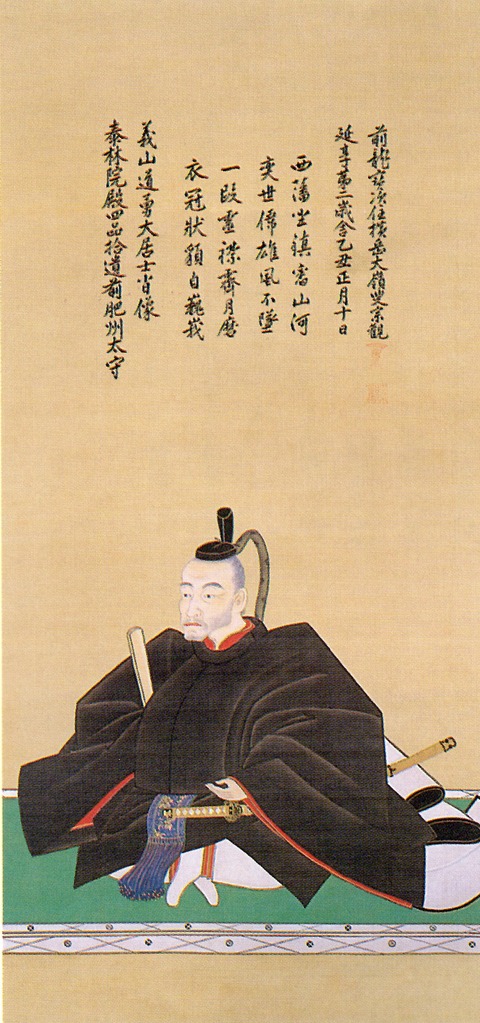 泰林院殿四品拾遺前肥州太守
義山道勇大居士肖像
衣冠狀貌自巍峩
一段靈襟霽月磨
奕世雄風不墜
西藩坐鎮富山河
延享第二歳舎乙丑正月十日
前龍寳次住横岳大嶺叟宗觀